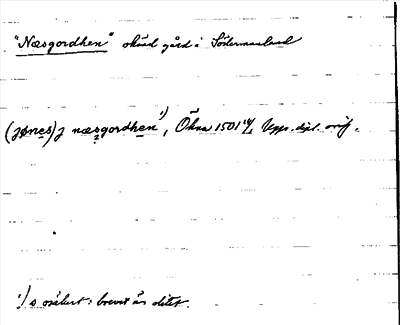 "Næsgordhen" okänd gård i Södermanland
(jønes) j næsgordhen ¹), Ökna 1501 Upps. dipl. orig.
¹) s osäkert: brevet är slitet.